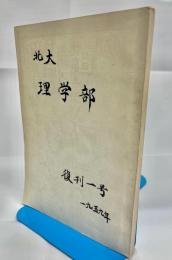 北大
理学部
復刊一号
一九五九年